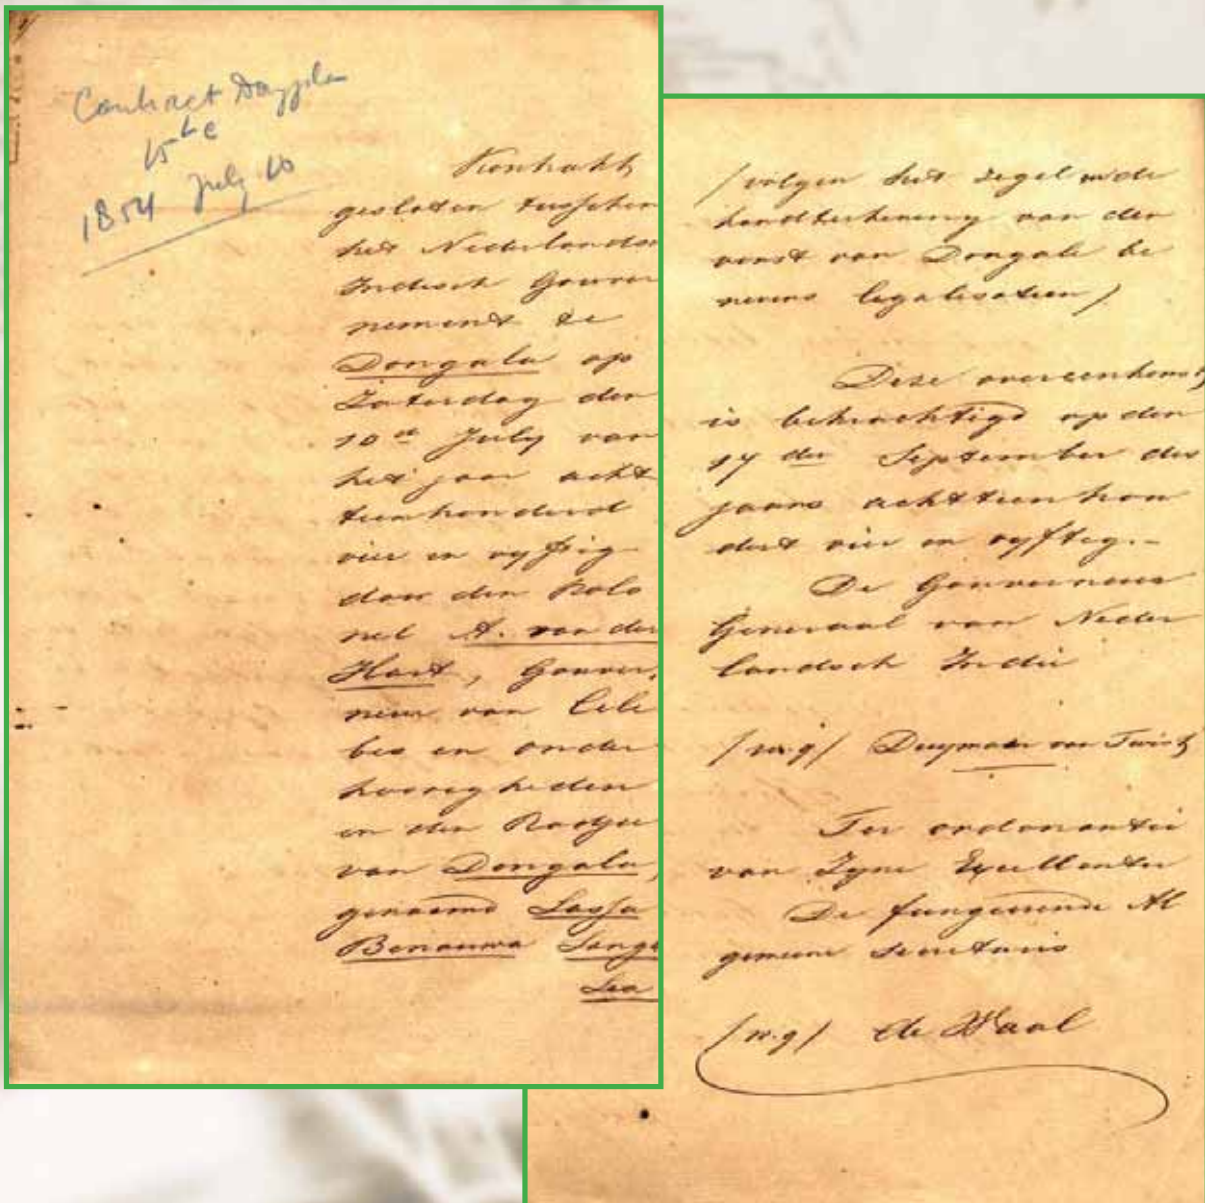 Contract
1854 July 10
Kontrakt
gesloten tusschen
het Nederlandsc
Indisch Gouver
nement te
Dongala op
Zaturdag den
10de July van
het jaar acht
tienhonderd
vier en vyftig
door den Kolo
nel A. van der
Hart, Gouver
neur van Cele
bes en onder
hoorigheden
en den Radja
van Dongala,
genaamd Lassa
Banauwa
Lea
/volgen het zegel en de
handteekening van den
vorst van Dongala be
nevens legalisatien/
Deze overeenkomst
is bekrachtigd op den
17 der September des
jaars achttienhon
dert vier en vyftig.-
De Gouverneur
Generaal van Neder
landsch Indië
/w.g/ Duymaer van Twist
Ter ordonantie
van Zyne Excellentie
De fungerende Al
gemeene Secretaris
/w.g/ de Waal